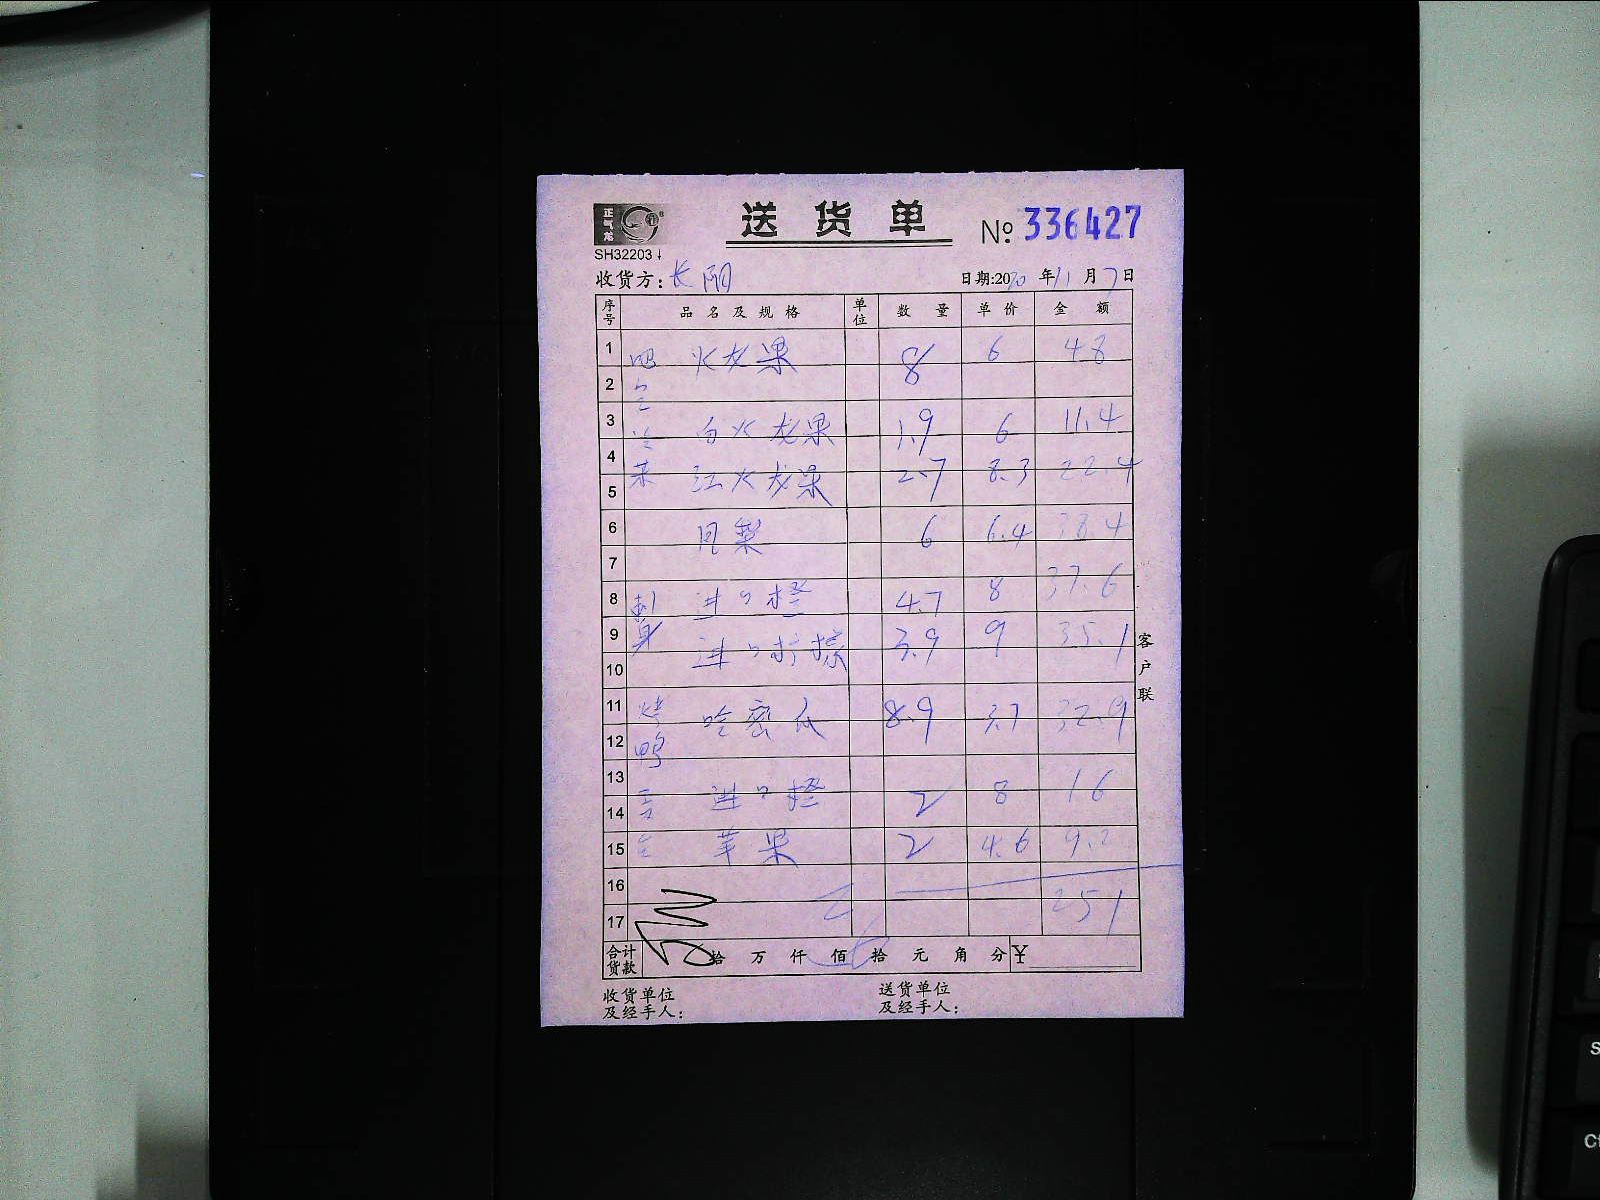 正气龙
送货单
№ 336427
SH32203
收货方：长阳
日期:2020年11月7日
序号 品名及规格 单位 数量 单价 金额
1 吧 火龙果 8 6 48
2
3 白火龙果 1.9 6 11.4
4 菜 红火龙果 2.7 8.3 22.4
5
6 凤梨 6 6.4 38.4
7
8 刺 进口橙 4.7 8 37.6
9 身 进口柠檬 3.9 9 35.1
10
11 烤 哈密瓜 8.9 3.7 32.9
12 鸭
13 进口橙 2 8 16
14
15 苹果 2 4.6 9.2
16
17 251
合计货款 拾 万 仟 佰 拾 元 角 分 ¥
收货单位及经手人：
送货单位及经手人：
客户联